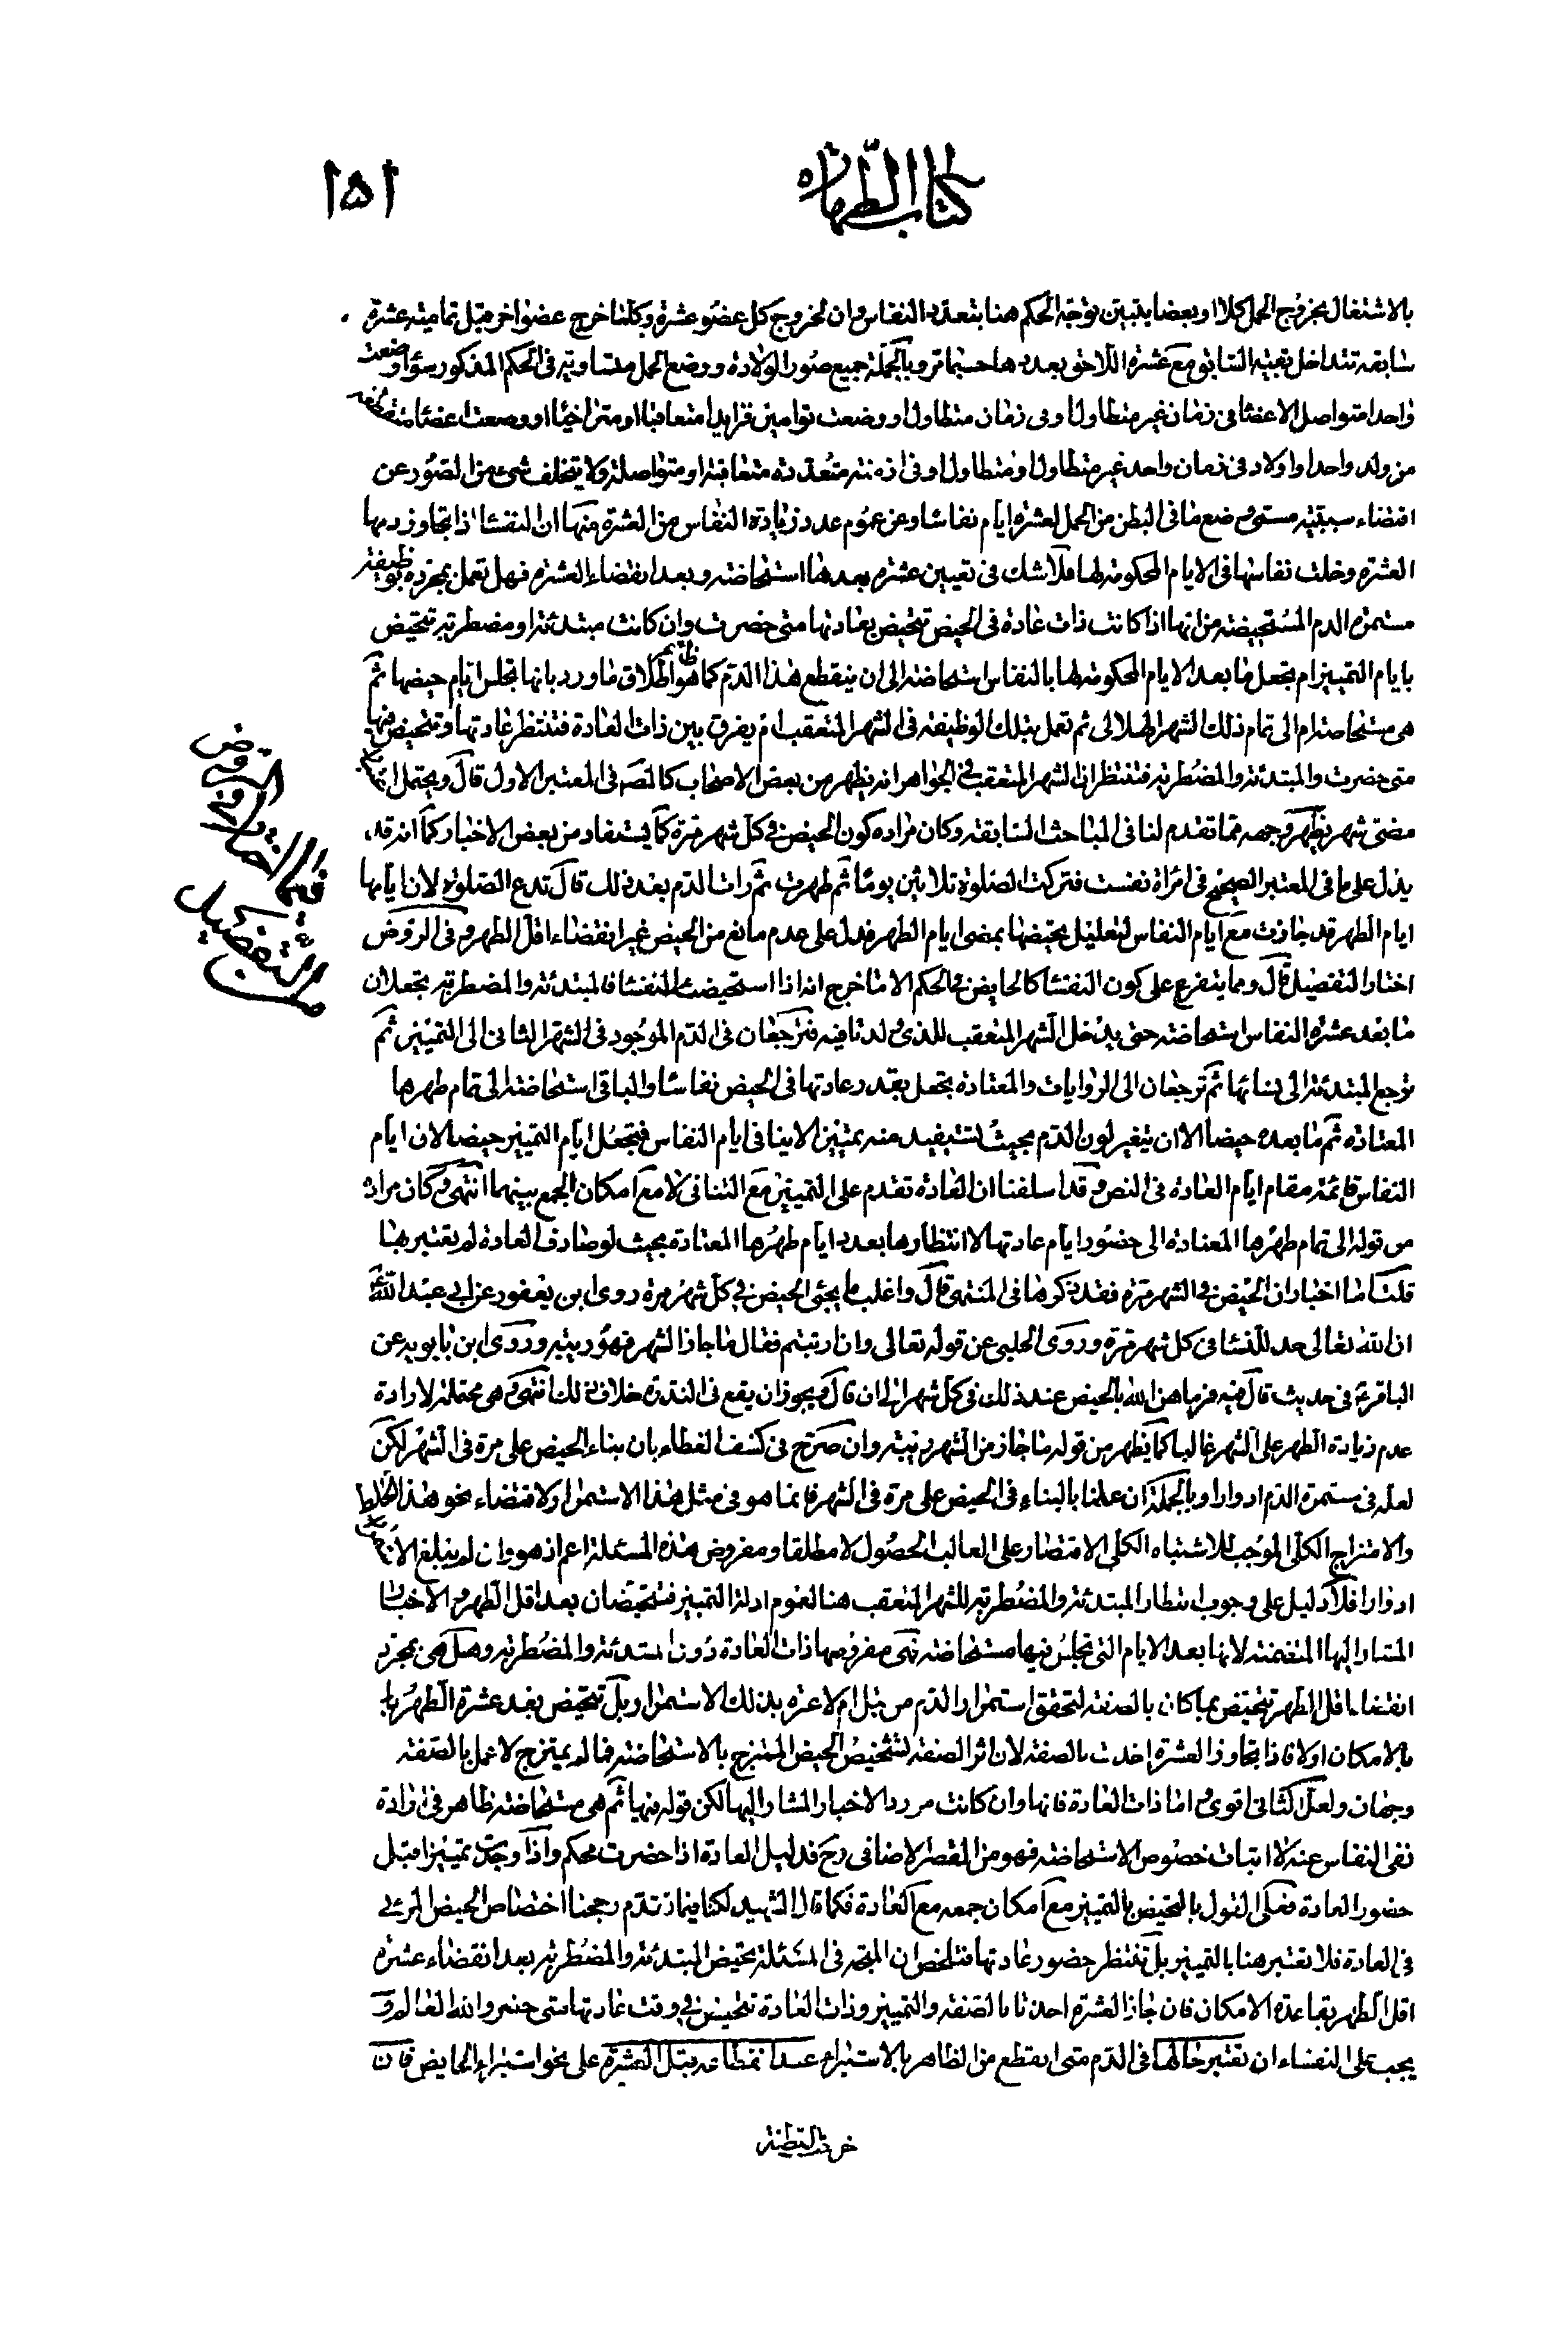 كتاب الطهارة
١٥١
بالاشتغال بخروج الحمل كلا او بعضا يتبين توجه الحكم هنا بتعدد النفاس وان لخروج كل عضو عشرة وكلما خرج عضو اخر قبل تمامية عشرة
سابقه تتداخل بقية السابق مع عشرة اللاحق بعدها حسبما مر وبالجملة جميع صور الولادة ووضع الحمل متساوية في الحكم المذكور سواء وضعت
واحدا متواصل الاعضاء في زمان غير متطاول او في زمان متطاول او وضعت توامين فزايدا متعاقبا او متراخيا او وضعت اعضاء متقطعة
من ولد واحد او اولاد في زمان واحد غير متطاول او متطاول او في ازمنة متعددة متعاقبة او متواصلة ولا يتخلف شئ من الصور عن
اقتضاء سببية مسمى وضع ما في البطن من الحمل لعشرة ايام نفاسا وعن عموم عدد زيادة النفاس من العشرة منها ان النفساء اذا تجاوز دمها
العشرة وخلت نفاسها في الايام المحكومة لها فلا شك في تعيين عشرة بعدها استحاضة وبعد انقضاء العشرة فهل تعمل بمجرده بوظيفة
مستمرة الدم المستحيضة من انها اذا كانت ذات عادة في الحيض تتحيض بعادتها متى حضرت وان كانت مبتدئة او مضطربة تتحيض
بايام التمييز ام تجعل ما بعد الايام المحكومة لها بالنفاس استحاضة الى ان ينقطع هذا الدم كما هو ظاهر اطلاق ما ورد بانها تجلس ايام حيضها ثم
هى مستحاضة ام الى تمام ذلك الشهر الهلالى ثم تعمل بتلك الوظيفة في الشهر المتعقب ام يفرق بين ذات العادة فتنتظر عادتها وتتحيض فيها
متى حضرت والمبتدئة والمضطربة فتنتظر ان الشهر المتعقب ففي الجواهر انه يظهر من بعض الاصحاب كالمصنف في المعتبر الاول قال ويحتمل اعتبار
مضى شهر يظهر وجهه مما تقدم لنا في المباحث السابقة وكان مراده كون الحيض في كل شهر مرة كما يستفاد من بعض الاخبار كما انه قد
يدل على ما في المعتبر الصحيح في امرأة نفست فتركت الصلوة ثلاثين يوما ثم طهرت ثم رات الدم بعد ذلك قال تدع الصلوة لان ايامها
ايام الطهر قد جازت مع ايام النفاس لتعليل تحيضها بمضى ايام الطهر فدل على عدم مانع من الحيض غير انقضاء اقل الطهر وفى الروض
اختار التفصيل قال ومما يتفرع على كون النفساء كالحايض في الحكم الا ما خرج انه اذا استحيضت النفساء فالمبتدئة والمضطربة تجعلان
ما بعد عشرة النفاس استحاضة حتى يدخل الشهر المتعقب للذى ولدتا فيه فترجعان في الدم الموجود في الشهر الثانى الى التمييز ثم
ترجع المبتدئة الى نسائها ثم ترجعان الى الروايات والمعتادة تجعل بقدر عادتها في الحيض نفاسا والباقى استحاضة الى تمام طهرها
المعتادة ثم ما بعده حيضا الا ان يتغير لون الدم بحيث تستفيد منه تمييز الاينافى ايام النفاس فتجعل ايام التمييز حيضا لان ايام
النفاس قائمة مقام ايام العادة في النص وقد اسلفنا ان العادة تقدم على التمييز مع التنافى لا مع امكان الجمع بينهما انتهى وكان مراده
من قوله الى تمام طهرها المعتادة الى حضور ايام عادتها لا انتظارها بعد ايام طهرها المعتادة بحيث لو صادف العادة لم يعتبر هنا
قلت اما اخبار ان الحيض في الشهر مرة فقد ذكرها في المنتهى قال واغلب ما يجئ الحيض في كل شهر مرة روى ابن يعفور عن ابي عبد الله
ان الله تعالى حد للنساء في كل شهر مرة وروى الحلبى عن قوله تعالى وان ارتبتم فقال ما جاز الشهر فهو ريبة وروى ابن بابويه عن
الباقر في حديث قال فيه فرماهن الله بالحيض عند ذلك في كل شهر الى ان قال ويجوز ان يقع في الندرة خلاف ذلك انتهى وهى محتملة لارادة
عدم زيادة الطهر على الشهر غالبا كما يظهر من قوله ما جاز من الشهر ريبة وان صرح في كشف الغطاء بان بناء الحيض على مرة في الشهر لكن
لعله في مستمرة الدم ادوارا وبالجملة ان عملنا بالبناء في الحيض على مرة في الشهر فانما هو في مثل هذا الاستمرار ولاقتضاء نحو هذا الخلط
والامتزاج الكلى الموجب للاشتباه الكلى الاقتصار على الغالب الحصول لا مطلقا ومفروض هذه المسئلة اعم اذ هو وان لم يبلغ الاستمرار
ادوارا فلا دليل على وجوب انتظار المبتدئة والمضطربة للشهر المتعقب هنا لعموم ادلة التمييز فتتحيضان بعد اقل الطهر والاخبار
المشار اليها المتضمنة لانها بعد الايام التى تجلس فيها مستحاضة فهى مفروضها ذات العادة دون المبتدئة والمضطربة وهل هى بمجرد
انقضاء اقل الطهر تتحيض بما كان بالصفة لتحقق استمرار الدم من قبل ام لا عبرة بذلك الاستمرار بل تتحيض بعد عشرة الطهر بها
بالامكان اولا فاذا تجاوز العشرة اخذت بالصفة لان اثر الصفة لتشخيص الحيض الممتزج بالاستحاضة فما لم يمتزج لا عمل بالصفة
وجهان ولعل الثانى اقوى اما ذات العادة فانها وان كانت مورد الاخبار المشار اليها لكن قوله فيها ثم هى مستحاضة ظاهر في ارادة
نفى النفاس عنه لا اثبات خصوص الاستحاضة فهو من القصر الاضافى وح فدليل العادة اذا حضرت محكم واذا وجدت تمييزا قبل
حضور العادة فعلى القول بالتحيض بالتمييز مع امكان جمعه مع العادة فكما قال الشهيد لكنا فيما تقدم رجحنا اختصاص الحيض المرئى
في العادة فلا تعتبر هنا بالتمييز بل تنتظر حضور عادتها فتلخص ان المتجه في المسئلة تحيض المبتدئة والمضطربة بعد انقضاء عشرة
اقل الطهر بقاعدة الامكان فان جاز العشرة اخذتا بالصفة والتمييز وذات العادة تتحيض في وقت عادتها متى حضر والله العالم و
يجب على النفساء ان تعتبر حالها في الدم متى انقطع من الظاهر بالاستبراء عند انقطاعه قبل العشرة على نحو استبراء الحايض فان
خرجت القطنة
فيما اختاره في الروض
من التفصيل